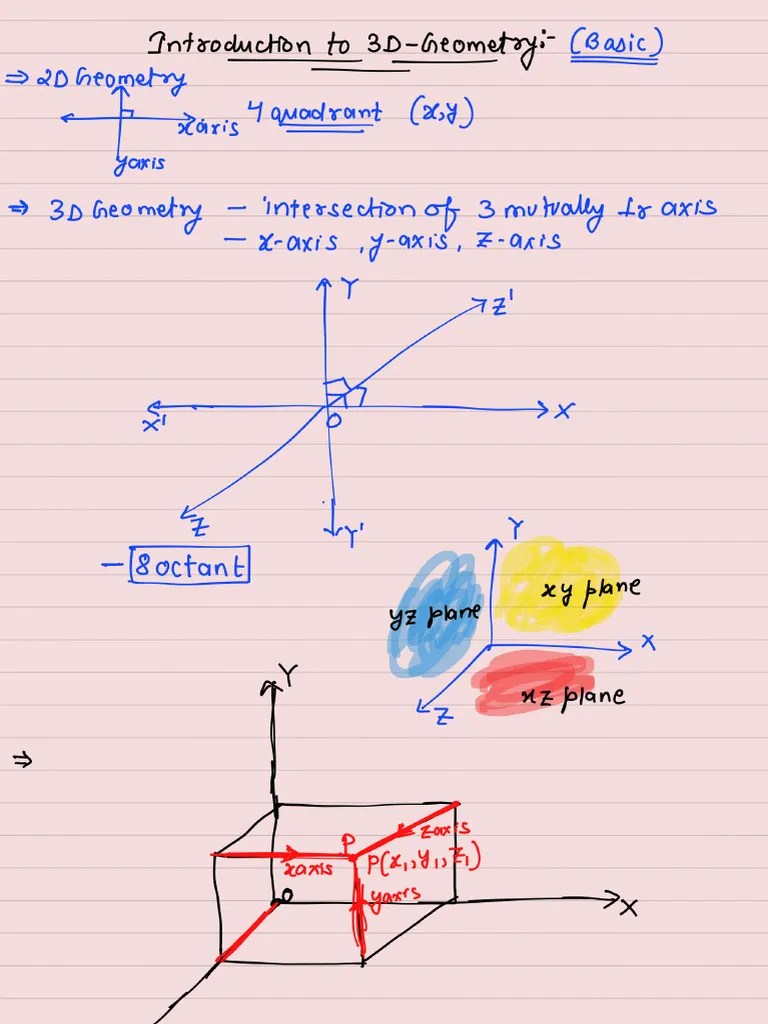 Introduction to 3D-Geometry:- (Basic)
⇒ 2D Geometry
x axis
4 quadrant (x,y)
y axis
⇒ 3D Geometry - intersection of 3 mutually ⊥r axis
- x-axis, y-axis, z-axis
Y
Z'
X'
O
X
Z
Y'
- 8 octant
Y
xy plane
yz plane
X
xz plane
Z
Y
⇒
P
z axis
x axis
P(x₁, y₁, z₁)
y axis
O
X